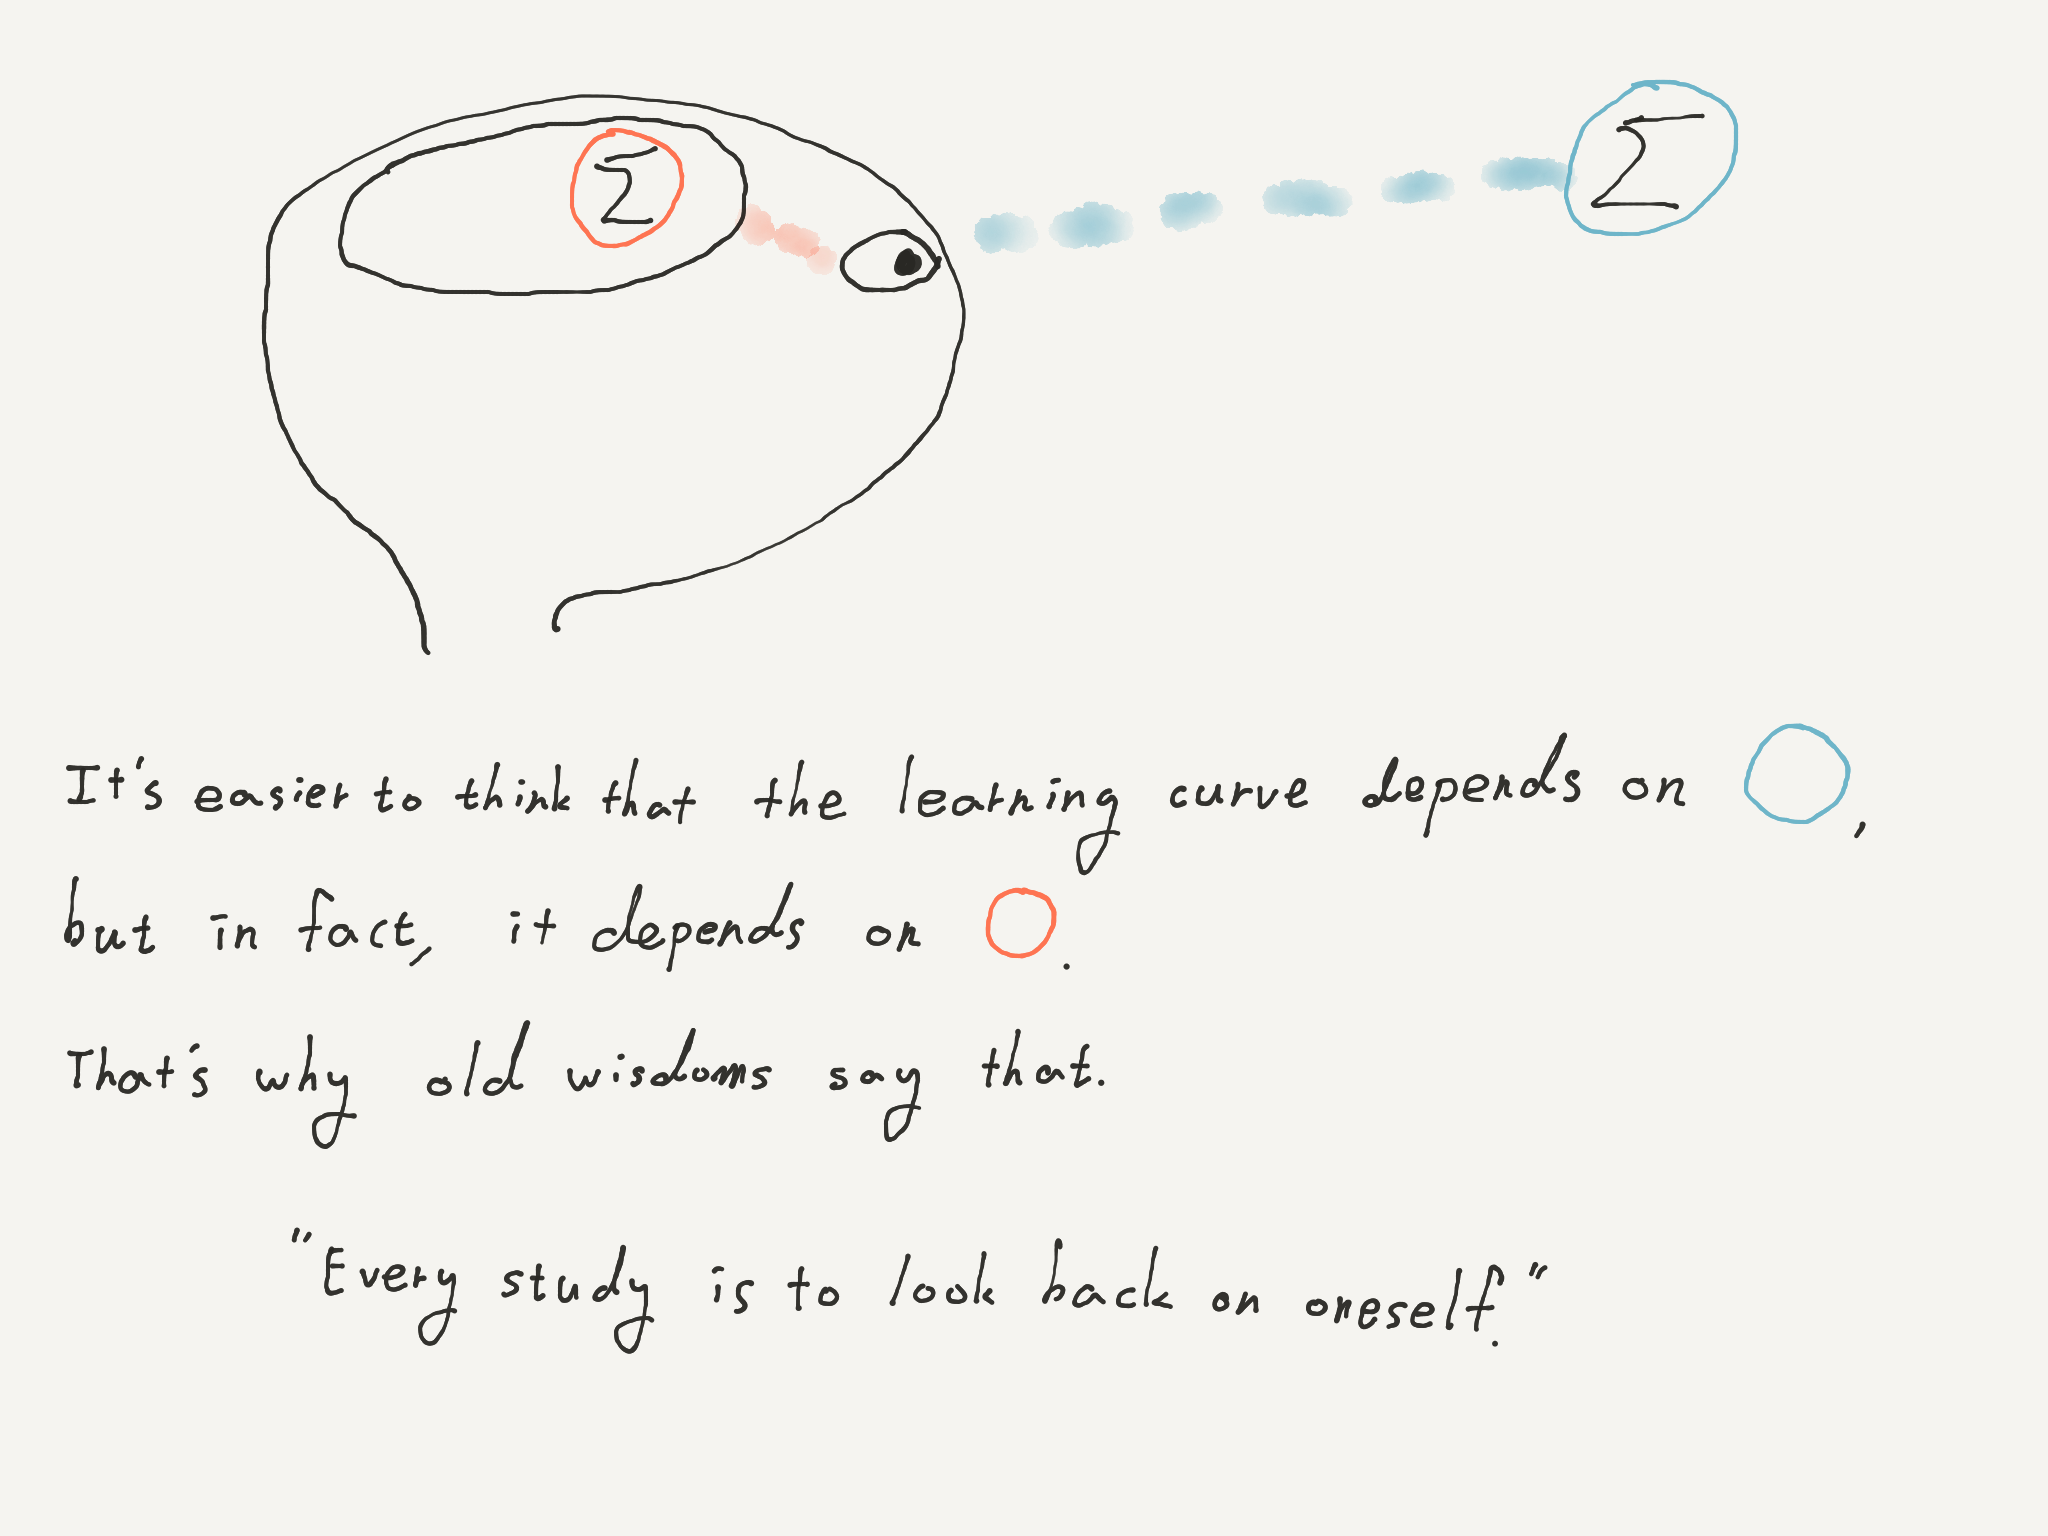 Σ Σ
It's easier to think that the learning curve depends on ,
but in fact, it depends on .
That's why old wisdoms say that.
"Every study is to look back on oneself."